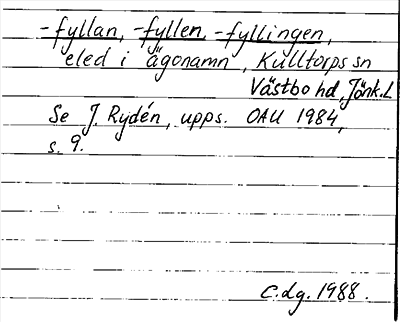 -fyllan, -fyllen, -fyllingen,
eled i ägonamn, Kulltorps sn
Västbo hd, Jönk.L
Se J. Rydén, upps. OAU 1984,
s. 9.
C.dg. 1988.